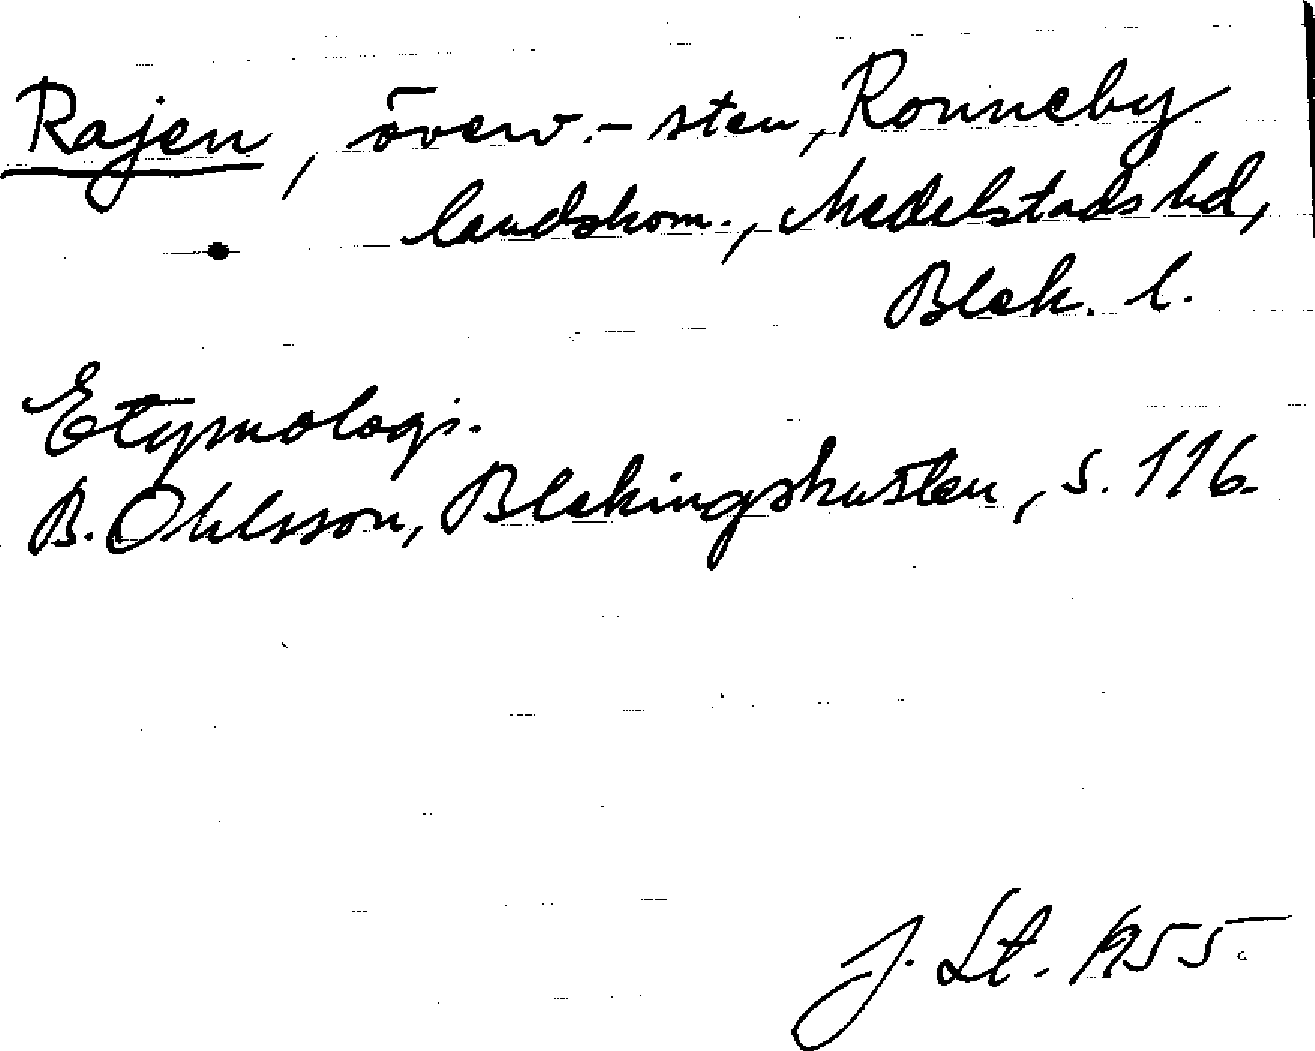 Rajen, överv.-sten, Ronneby
landskom., Medelstads hd,
Blek. l.
Etymologi.
B. Ohlsson, Blekingskusten, s. 116.
J. Lt. 1955.